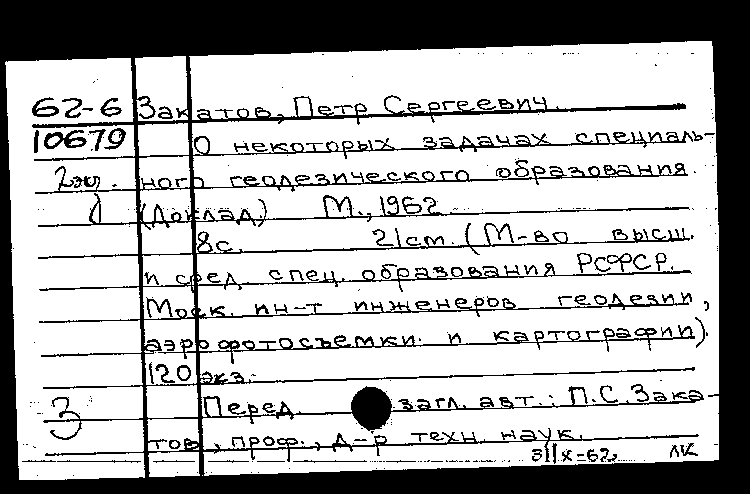 62-6 Закатов, Петр Сергеевич.
10679 О некоторых задачах специаль-
2 экз. ного геодезического образования.
(Доклад) М., 1962
8с. 21cm. (М-во высш.
и сред. спец. образования РСФСР.
Моск. ин-т инженеров геодезии,
аэрофотосъемки и картографии).
120 экз.
Перед загл. авт.: П.С. Зака-
3 тов, проф., д-р техн. наук.
ЛК